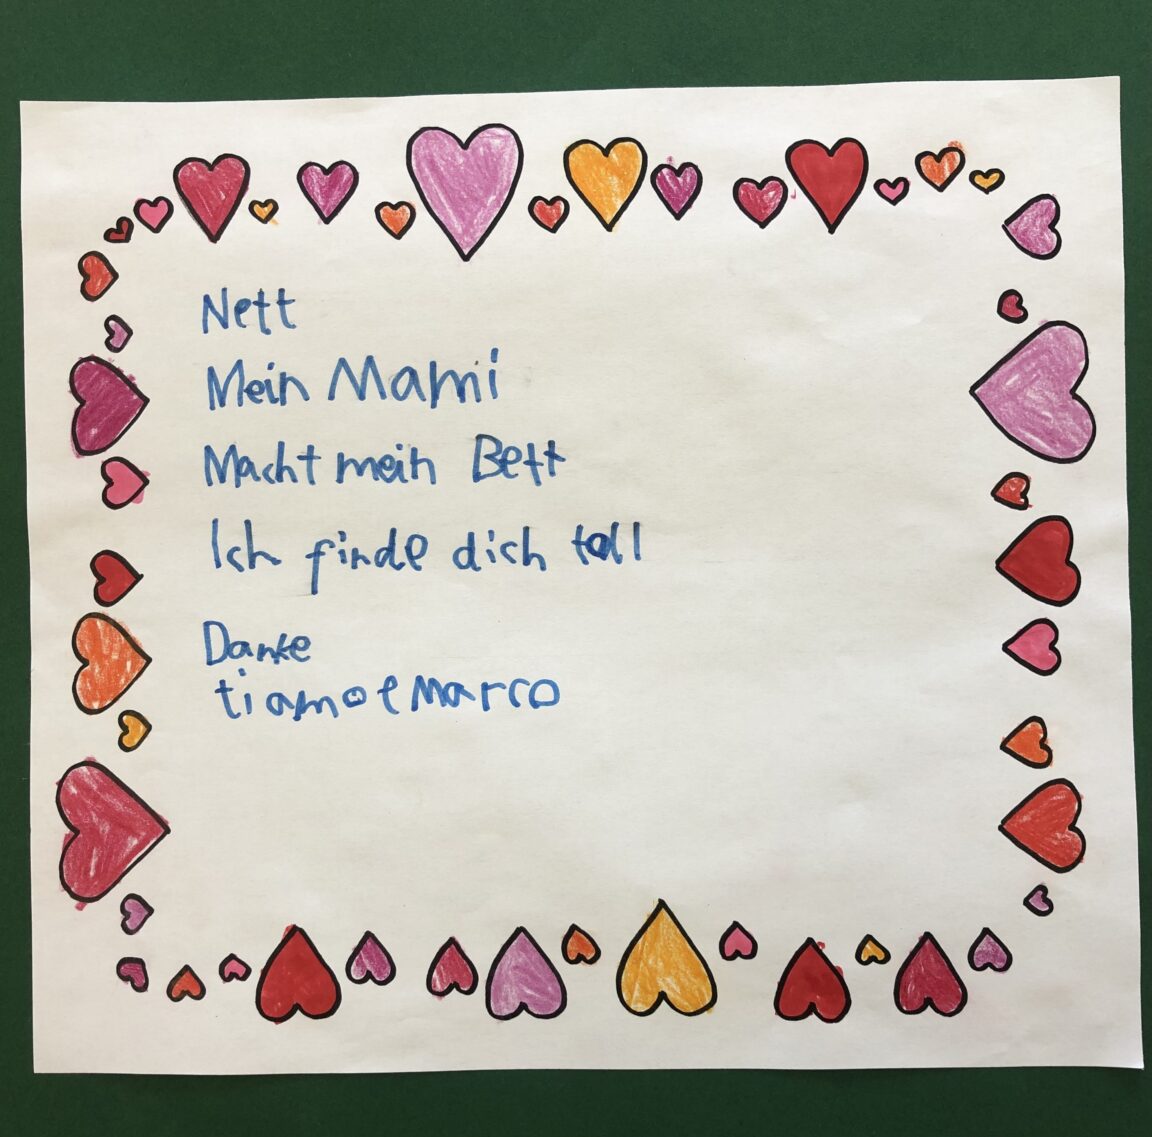 Nett
Mein Mami
Macht mein Bett
Ich finde dich toll
Danke
ti amo e Marco